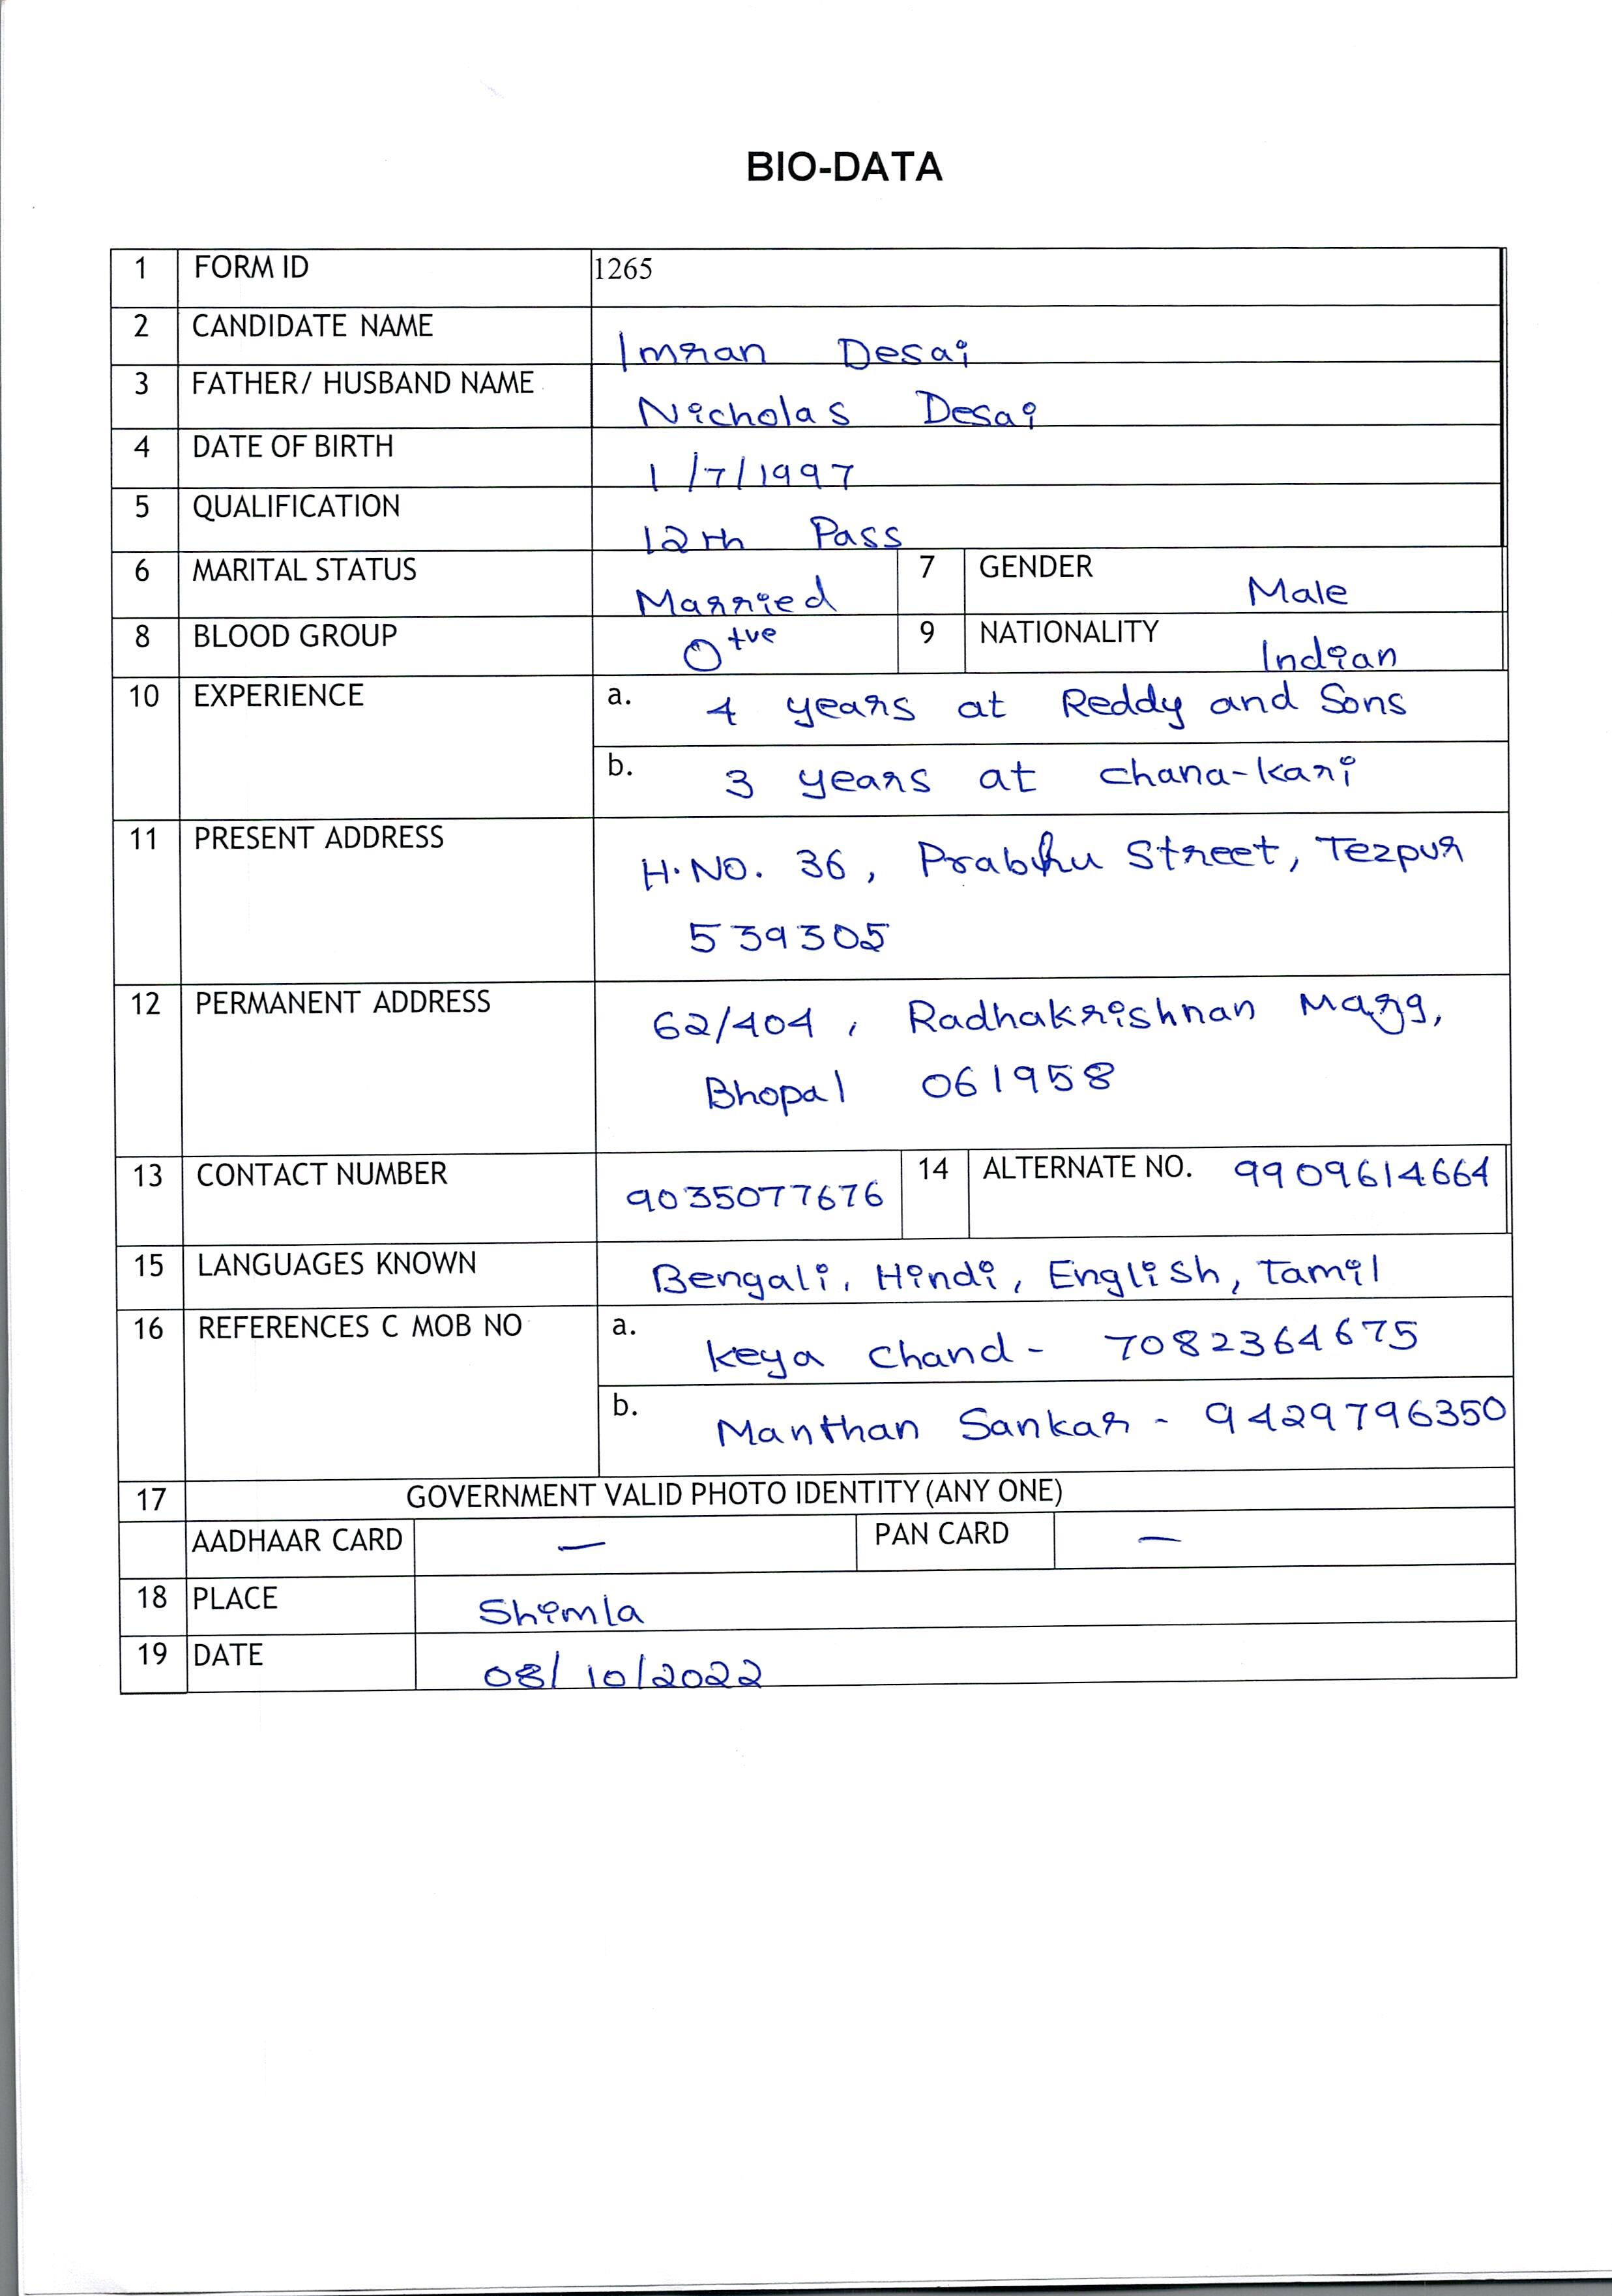 BIO-DATA
1 FORM ID 1265
2 CANDIDATE NAME Imran Desai
3 FATHER/ HUSBAND NAME Nicholas Desai
4 DATE OF BIRTH 1/7/1997
5 QUALIFICATION 12th Pass
6 MARITAL STATUS Married 7 GENDER Male
8 BLOOD GROUP O+ve 9 NATIONALITY Indian
10 EXPERIENCE a. 4 years at Reddy and Sons
b. 3 years at Chana-Kari
11 PRESENT ADDRESS H.NO. 36, Prabhu Street, Tezpur
539305
12 PERMANENT ADDRESS 62/404, Radhakrishnan Marg,
Bhopal 061958
13 CONTACT NUMBER 9035077676 14 ALTERNATE NO. 9909614664
15 LANGUAGES KNOWN Bengali, Hindi, English, Tamil
16 REFERENCES C MOB NO a. Keya Chand - 7082364675
b. Manthan Sankar - 9429796350
17 GOVERNMENT VALID PHOTO IDENTITY (ANY ONE)
AADHAAR CARD — PAN CARD —
18 PLACE Shimla
19 DATE 08/10/2022